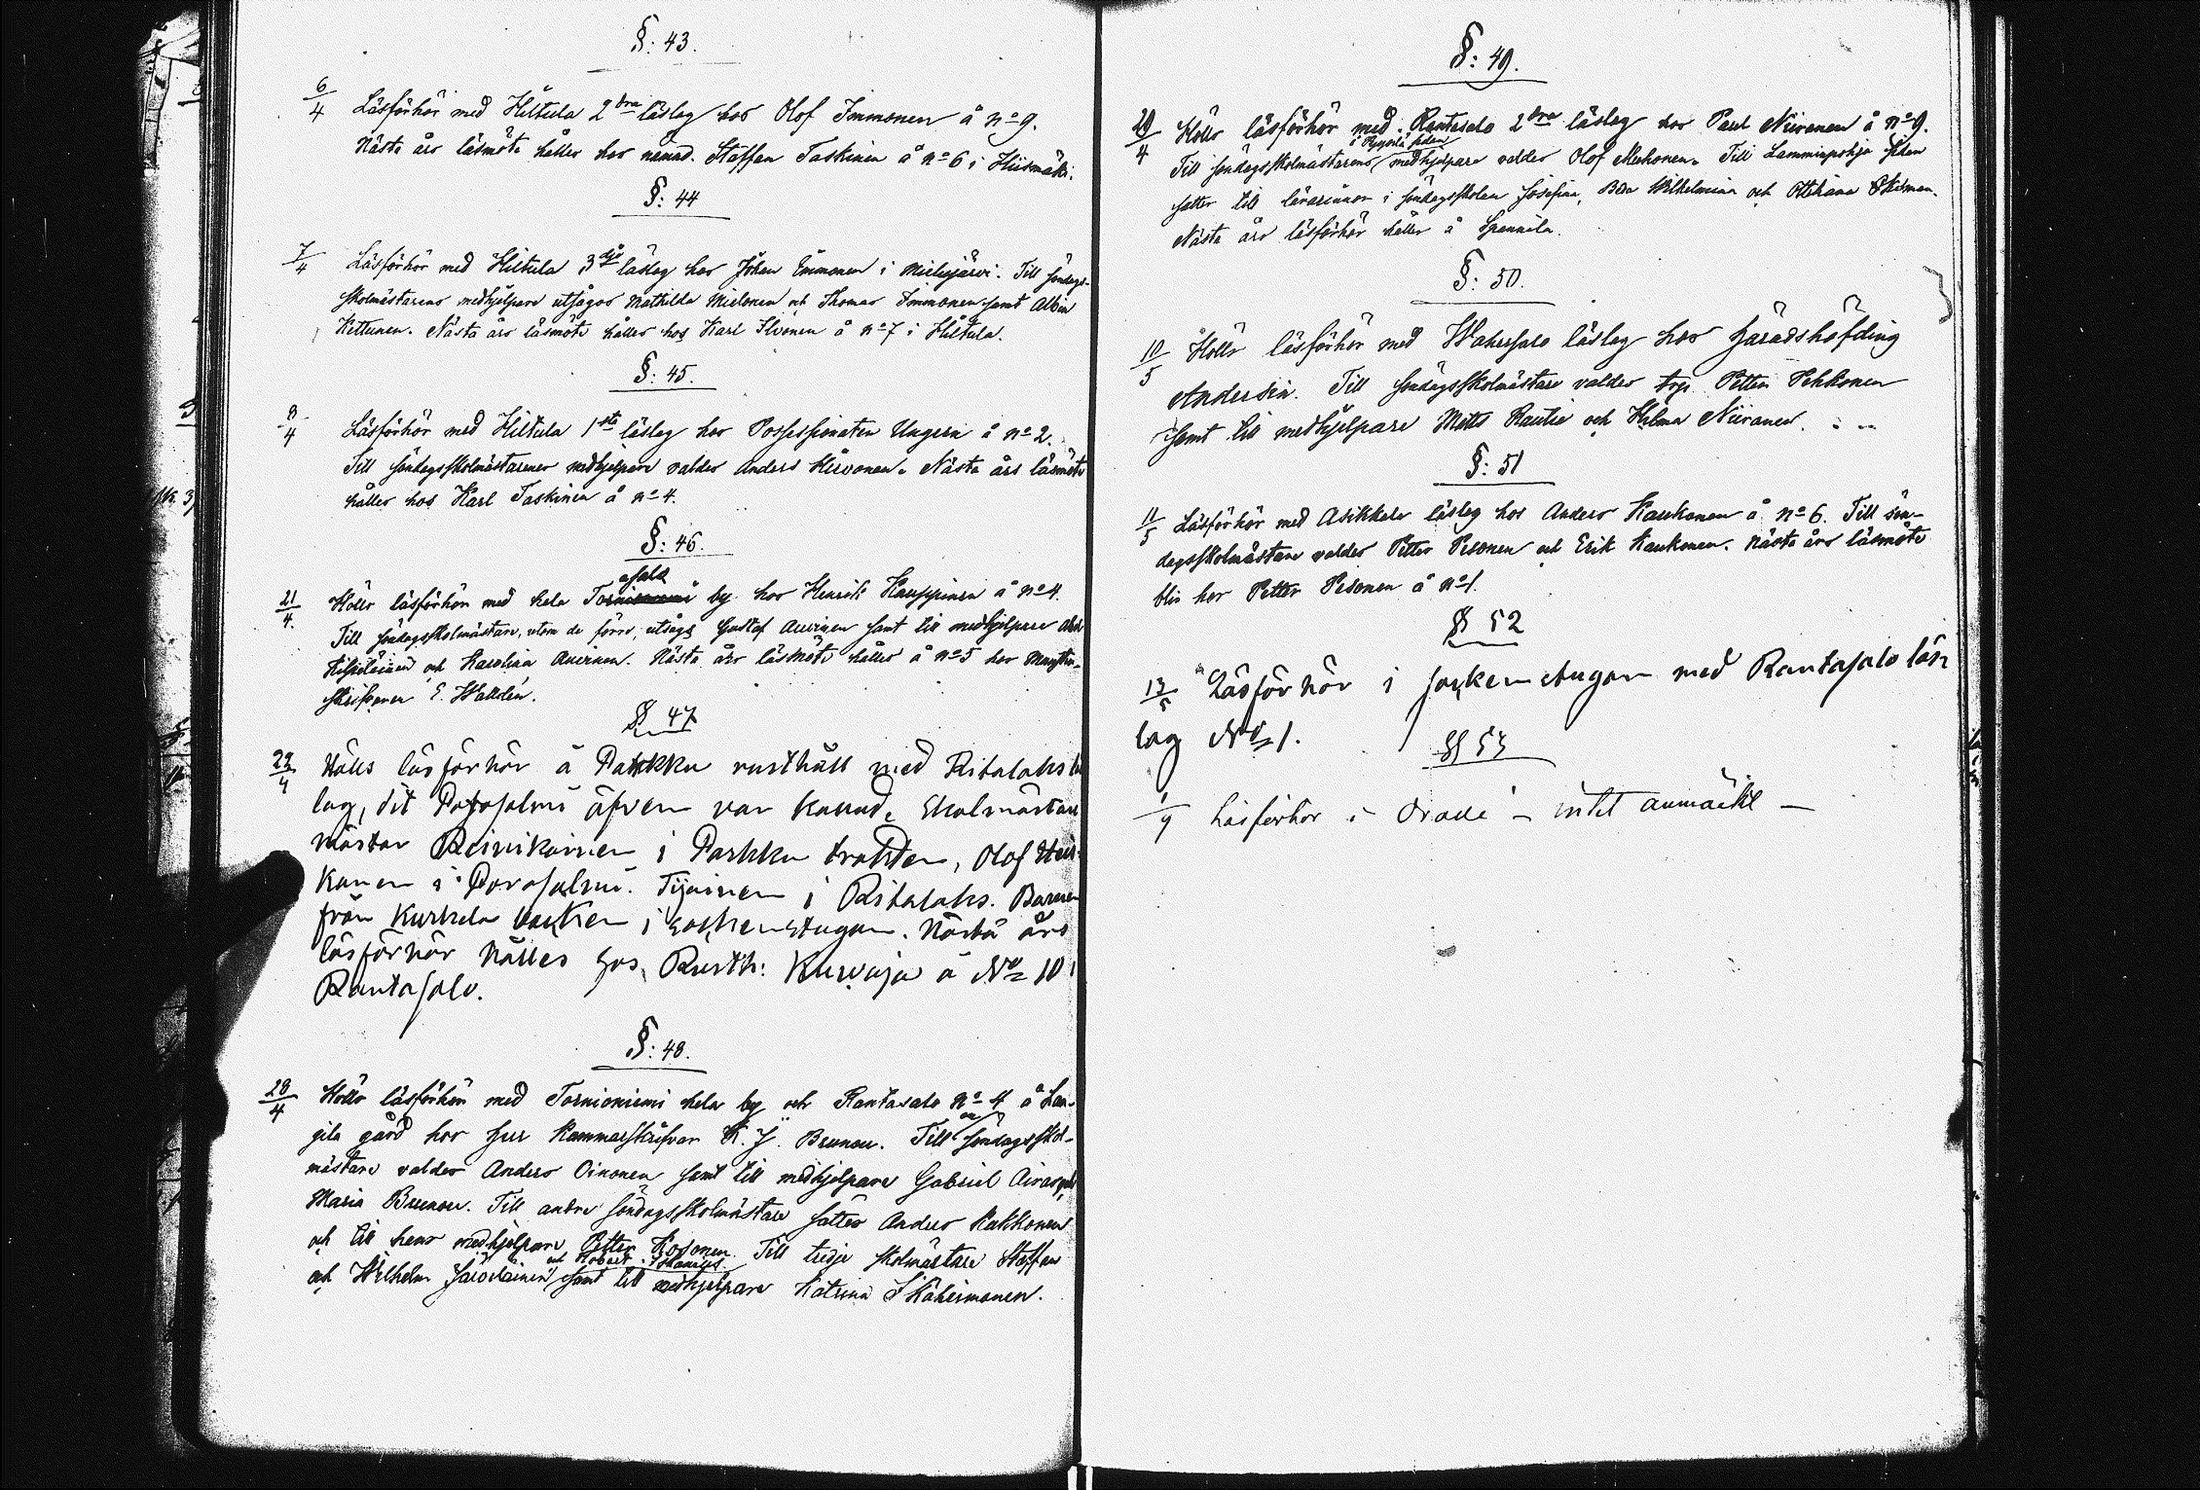 §: 43.
6/4 Läsförhör med Hiltula 2dra läslag hos Olof Immonen å No 9.
Nästa års läsmöte hålles hos nämnd. Staffan Taskinen å No 6 i Hiismäki.
§: 44
7/4 Läsförhör med Hiltula 3dje läslag hos Johan Immonen i Mielusjärvi. Till söndags-
skolmästarens medhjelpare utsågos Mathilda Mielonen och Thomas Immonen samt Albin
Kettunen. Nästa års läsmöte hålles hos Karl Ilvonen å No 7 i Hiltula.
§: 45.
8/4 Läsförhör med Hiltula 1sta läslag hos Possessionaten Ungern å No 2.
Till söndagsskolmästarenes medhjelpare valdes Anders Hirvonen. Nästa års läsmöte
hålles hos Karl Taskinen å No 4.
§: 46.
asalo
21/4. Hölls läsförhör med hela by hos Henrik Kauppinen å No 4.
Till söndagsskolmästare, utom de förre, utsågs Gustaf Auvinen samt till medhjelpare
och Karolina Auvinen. Nästa års läsmöte hålles å No 5 hos
E. Walldén.
§ 47
22/4 Hölls läsförhör å Parkku rusthåll med Ritalaks
lag, dit Porosalmi äfven var kallad. Skolmästare
Reinikainen i Parkku trakten, Olof
kanen i Porosalmi. Tijainen i Ritalaks. Barnen
från Kurkela backen i Sockenstugan. Nästa års
läsförhör hålles hos Rusth: Kurvaja å No 10 i
Rantasalo.
§: 48.
28/4 Hölls läsförhör med Tornioniemi hela by och Rantasalo No 4 å Lan-
gila gård hos Herr Kammarskrifvar K. J. Brunou. Till en söndagsskol-
mästare valdes Anders Oinonen samt till medhjelpare Gabriel
Maria Brunou. Till andre söndagsskolmästare sattes Anders Kakkonen
och till hans medhjelpare Petter Kosonen. Till tredje skolmästare Staffan
och Robert Johannes
och Wilhelm samt till medhjelpare Katrina
§: 49.
29/4 Hölls läsförhör med Rantasalo 2dra läslag hos Paul Niiranen å No 9.
Till söndagsskolmästarens medhjelpare valdes Olof Makonen. Till Lamminpohja sidan
sattes till lärarinnor i söndagsskolan Josefina, Wilhelmina och
Nästa års läsförhör hålles å Spannila.
§: 50.
10/5 Hölls läsförhör med läslag hos Häradshöfding
Andersin. Till söndagsskolmästare valdes torp. Petter Pekkonen
samt till medhjelpare Matts Rautio och Helma Niiranen.
§: 51
11/5 Läsförhör med Asikkala läslag hos Anders Kaukonen å No 6. Till sön-
dagsskolmästare valdes Petter Pesonen och Erik Kaukonen. Nästa års läsmöte
blir hos Petter Pesonen å No 1.
§ 52
13/5 Läsförhör i sockenstugan med Rantasalo läse
lag No 1.
§ 53
1/9 Läsförhör i – intet anmärkt –